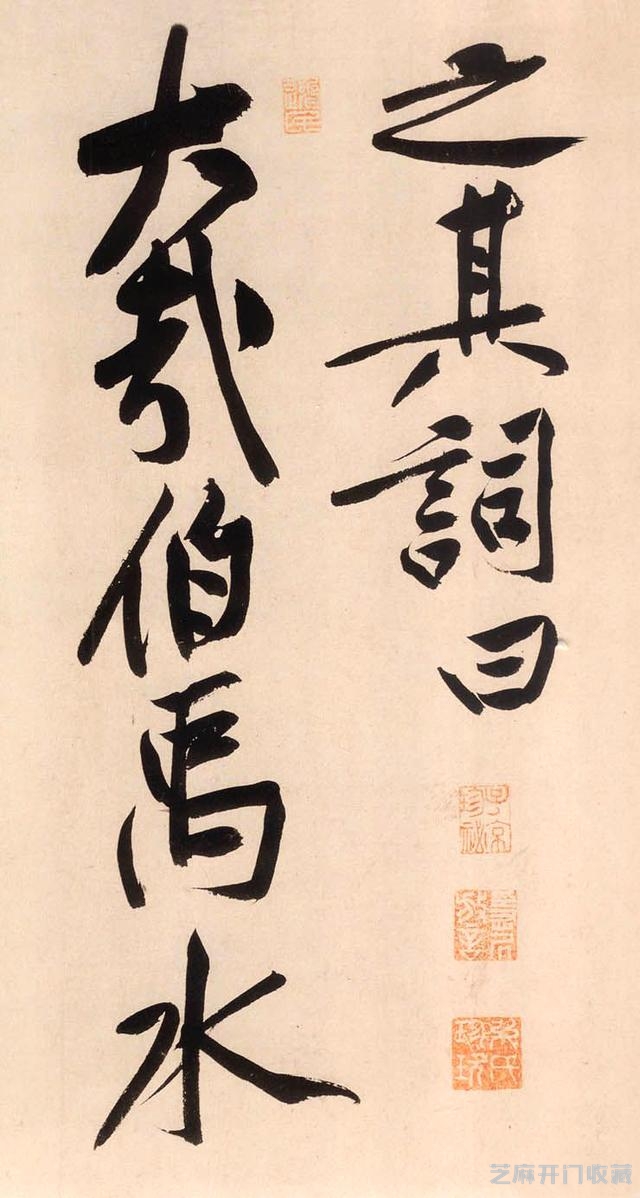 之其詞曰
大哉伯禹水
芝麻开门收藏